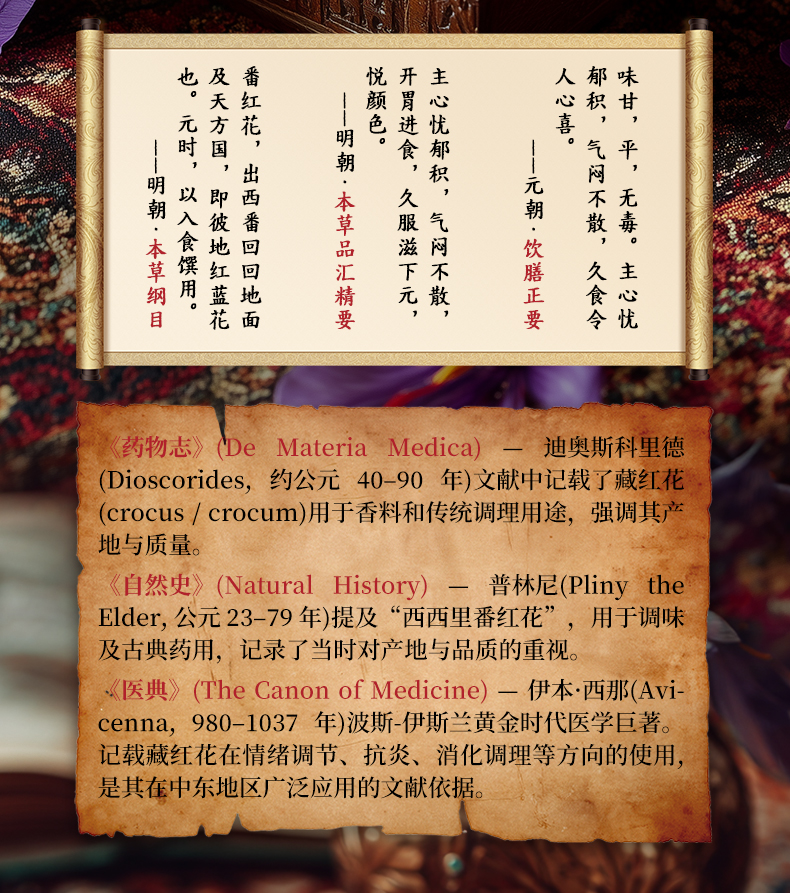 味甘，平，无毒。主心忧
郁积，气闷不散，久食令
人心喜。
——元朝·饮膳正要
主心忧郁积，气闷不散，
开胃进食，久服滋下元，
悦颜色。
——明朝·本草品汇精要
番红花，出西番回回地面
及天方国，即彼地红蓝花
也。元时，以入食馔用。
——明朝·本草纲目
《药物志》(De Materia Medica) — 迪奥斯科里德
(Dioscorides, 约公元 40–90 年)文献中记载了藏红花
(crocus / crocum)用于香料和传统调理用途，强调其产
地与质量。
《自然史》(Natural History) — 普林尼(Pliny the
Elder, 公元 23–79 年)提及“西西里番红花”，用于调味
及古典药用，记录了当时对产地与品质的重视。
《医典》(The Canon of Medicine) — 伊本·西那(Avi-
cenna, 980–1037 年)波斯-伊斯兰黄金时代医学巨著。
记载藏红花在情绪调节、抗炎、消化调理等方向的使用，
是其在中东地区广泛应用的文献依据。